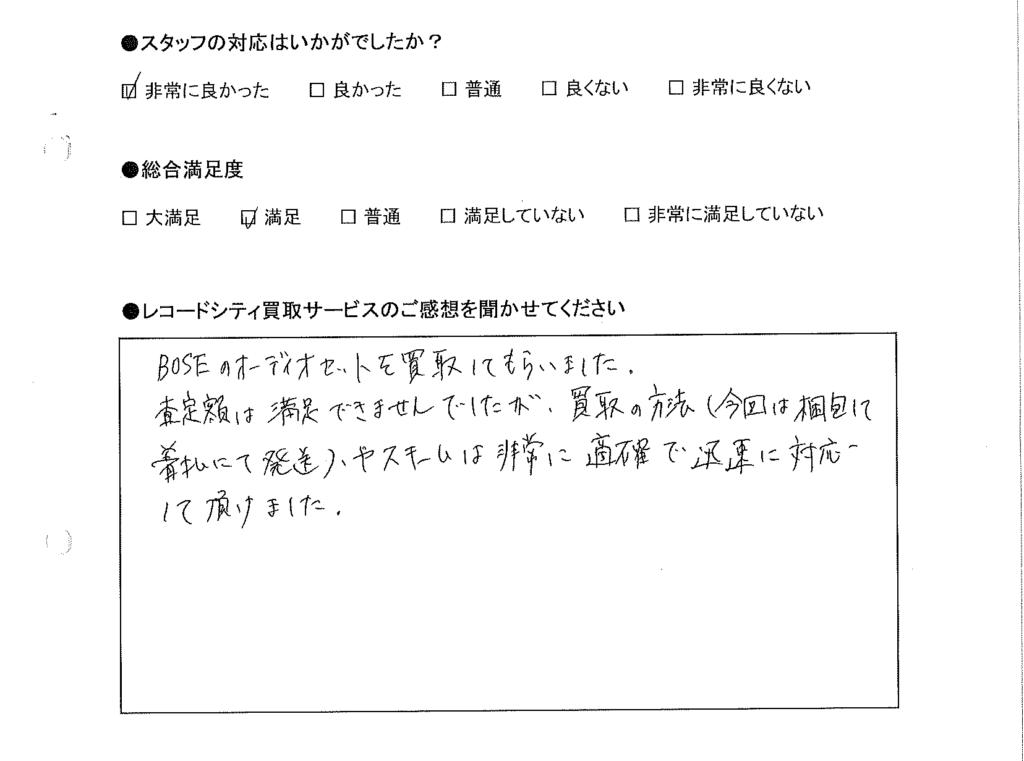 ●スタッフの対応はいかがでしたか？
☑ 非常に良かった □ 良かった □ 普通 □ 良くない □ 非常に良くない
●総合満足度
□ 大満足 ☑ 満足 □ 普通 □ 満足していない □ 非常に満足していない
●レコードシティ買取サービスのご感想を聞かせてください
BOSEのオーディオセットを買取してもらいました.
査定額は満足できませんでしたが、買取の方法(今回は梱包して
着払にて発送)、やスキームは非常に適確で迅速に対応
して頂けました.